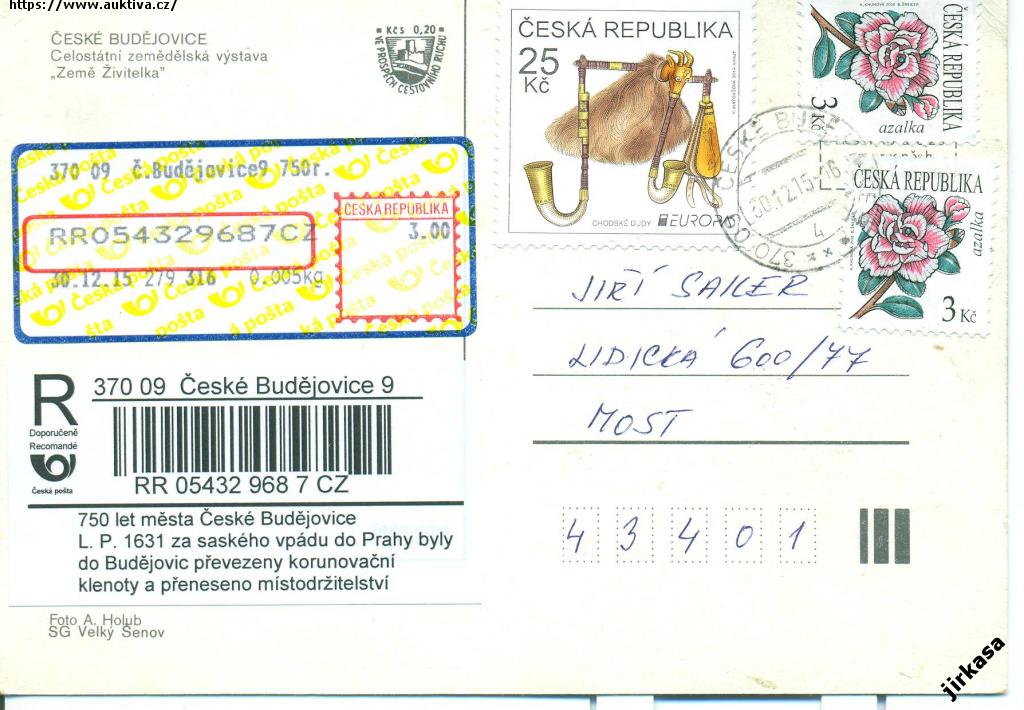 https://www.auktiva.cz/
ČESKÉ BUDĚJOVICE
Celostátní zemědělská výstava
„Země Živitelka”
Kčs 0,20
VE PROSPĚCH CESTOVNÍHO RUCHU
ČESKÁ REPUBLIKA
25
Kč
CHODSKÉ DUDY
EUROPA
ČESKÁ REPUBLIKA
3 Kč
azalka
ČESKÁ REPUBLIKA
azalka
3 Kč
370 09 Č.Budějovice9 750r.
ČESKÁ REPUBLIKA
3.00
RR054329687CZ
30.12.15 279 316 0.005kg
Česká pošta
30.12.15-16
4
R
Doporučeně
Recomandé
Česká pošta
370 09 České Budějovice 9
RR 05432 968 7 CZ
750 let města České Budějovice
L. P. 1631 za saského vpádu do Prahy byly
do Budějovic převezeny korunovační
klenoty a přeneseno místodržitelství
JIŘÍ SAILER
LIDICKÁ 600/77
MOST
43401
Foto A. Holub
SG Velký Šenov
jirkasa